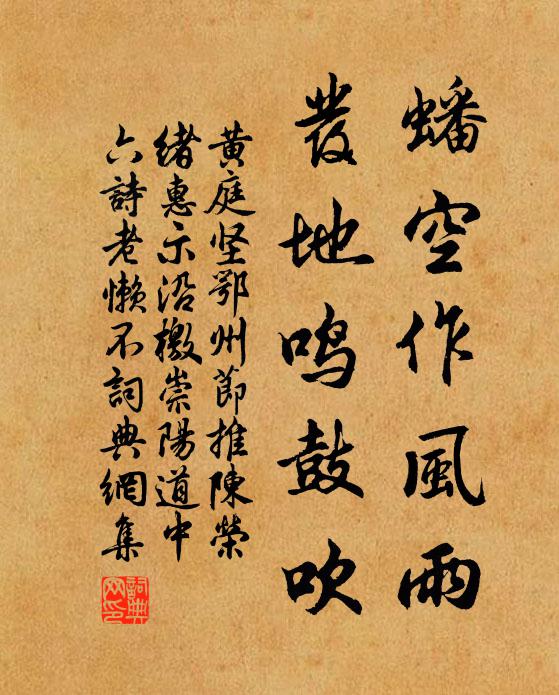 蟠空作風雨
發地鳴鼓吹
黄庭坚鄂州節推陳榮
緒惠示沿檄崇陽道中
六詩老懶不詞典網集
詞典网印